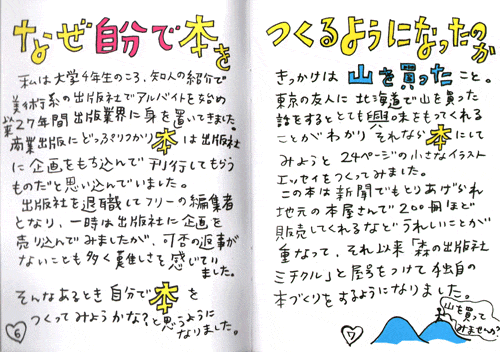 なぜ自分で本を
つくるようになったのか
私は大学4年生のころ、知人の紹介で
美術行系の出版社でアルバイトを始め
以来27年間出版業界に身を置いてきました。
商業出版にどっぷりつかり本は出版社
に企画をもち込んで刊行してもらう
ものだと思い込んでいました。
出版社を退職してフリーの編集者
となり、一時は出版社に企画を
売り込んでみましたが、可否の返事が
ないことも多く寂しさを感じてい
ました。
そんなあるとき自分で本を
つくってみようかな?と思うように
なりました。
6
きっかけは山を買ったこと。
東京の友人に北海道で山を買った
話をするととても興味をもってくれる
ことがわかりそれなら本にして
みようと24ページの小さなイラスト
エッセイをつくってみました。
この本は新聞でもとりあげられ
地元の本屋さんで200冊ほど
販売してくれるなどうれしいことが
重なって、それ以来「森の出版社
ミチクル」と屋号をつけて独自の
本づくりをするようになりました。
山を買って
みませんか?
7